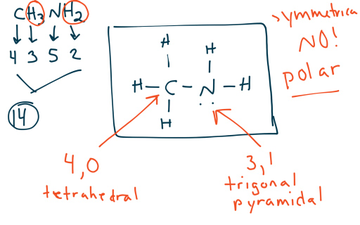 CH3NH2
4 3 5 2
14
symmetrica
NO!
polar
H H
H-C-N-H
H
4,0
tetrahedral
3,1
trigonal
pyramidal